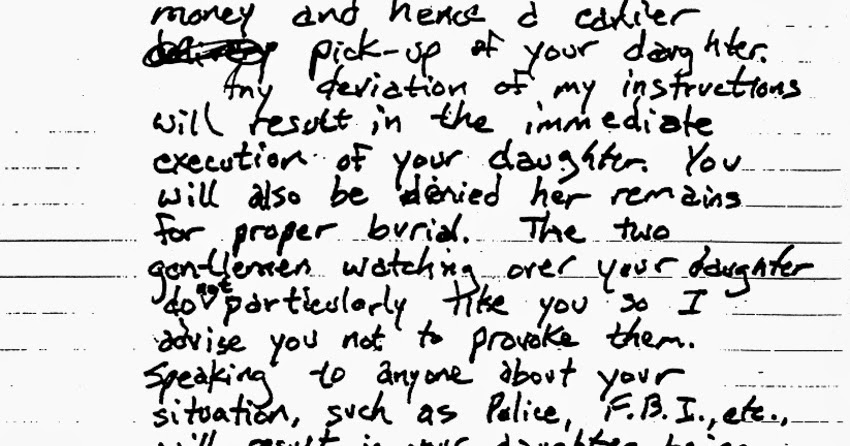 money and hence a earlier
delivery pick-up of your daughter.
Any deviation of my instructions
will result in the immediate
execution of your daughter. You
will also be denied her remains
for proper burial. The two
gentlemen watching over your daughter
do not particularly like you so I
advise you not to provoke them.
Speaking to anyone about your
situation, such as Police, F.B.I., etc.,
will result in your daughter being